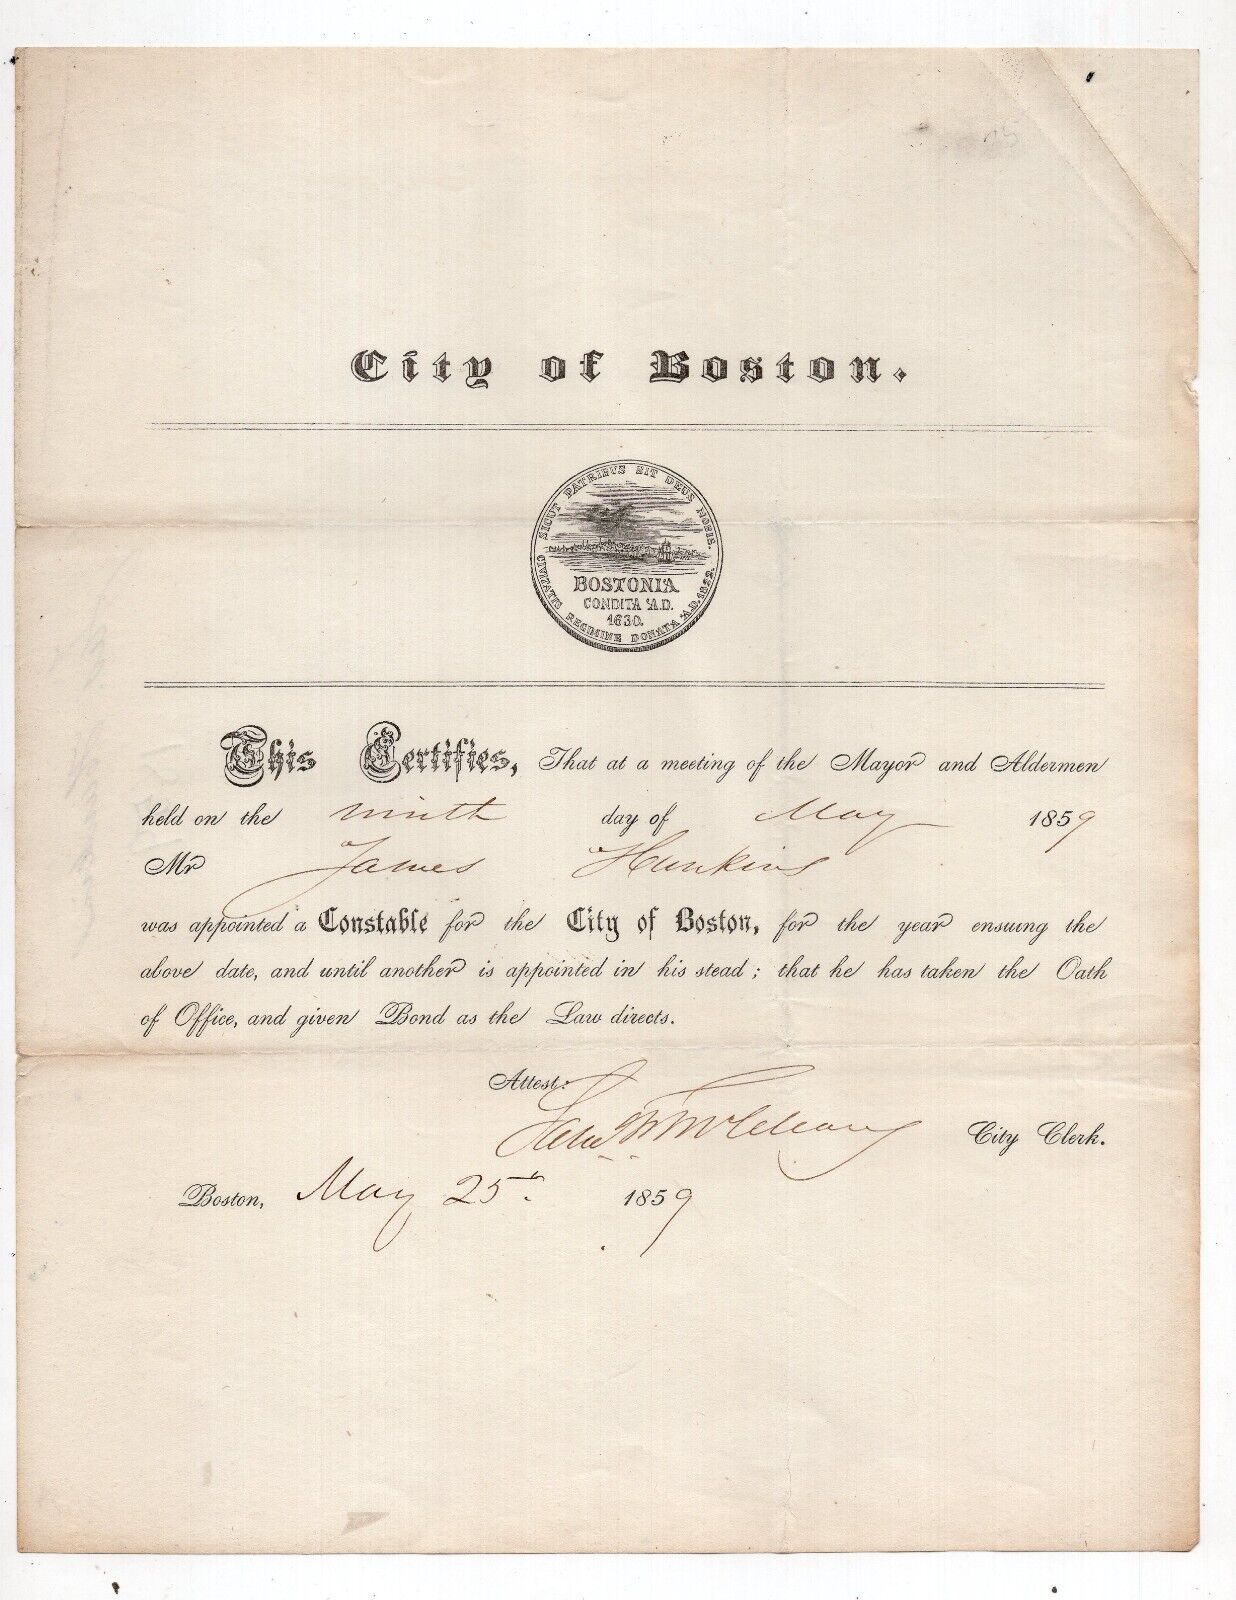 City of Boston.
SICUT PATRIBUS SIT DEUS NOBIS.
BOSTONIA
CONDITA A.D.
1630.
CIVITATIS REGIMINE DONATA A.D. 1822.
This Certifies, That at a meeting of the Mayor and Aldermen
held on the ninth day of May 1859
Mr James Hunkins
was appointed a Constable for the City of Boston, for the year ensuing the
above date, and until another is appointed in his stead; that he has taken the Oath
of Office, and given Bond as the Law directs.
Attest:
Saml. F. McCleary City Clerk.
Boston, May 25th. 1859